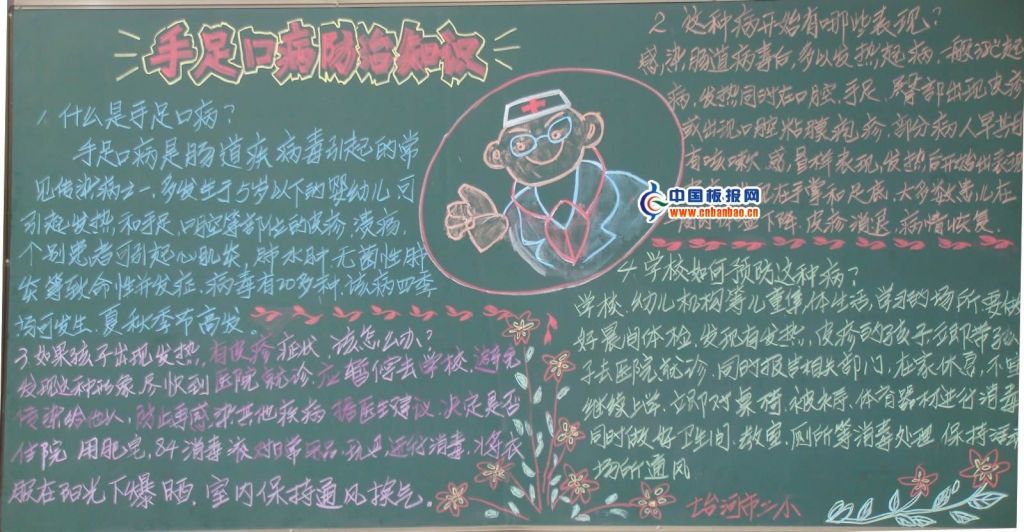 手足口病防治知识
1. 什么是手足口病?
手足口病是肠道病毒引起的常
见传染病之一,多发生于5岁以下的婴幼儿,可
引起发热和手足、口腔等部位的皮疹、溃疡,
个别患者可引起心肌炎、肺水肿、无菌性脑
炎等致命性并发症。病毒有20多种,该病四季
均可发生,夏秋季节高发。
2. 这种病开始有哪些表现?
感染肠道病毒后,多以发热起病,一般
病,发热同时在口腔、手足、臀部出现皮疹
或出现口腔粘膜疱疹,部分病人早期
有咳嗽、感冒样表现,发热
在手掌和足底,大多数患儿在
体温下降,皮疹消退,病情恢复。
中国板报网
www.cnbanbao.cn
3. 如果孩子出现发热,有皮疹症状,该怎么办?
发现这种现象,尽快到医院就诊,应暂停去学校,避免
传染给他人,防止再感染其他疾病,据医生建议,决定是否
住院,用肥皂、84消毒液对日常用品、玩具进行消毒,将衣
服在阳光下爆晒,室内保持通风换气。
4. 学校如何预防这种病?
学校、幼儿机构等儿童集体生活、学习的场所要做
好晨间体检,发现有发热,皮疹的孩子,立即带孩
子去医院就诊,同时报告相关部门,在家休息,不
继续上学,立即对桌椅、被褥、体育器材进行消毒
同时做好卫生间、教室、厕所等消毒处理,保持活动
场所通风
七台河市二小